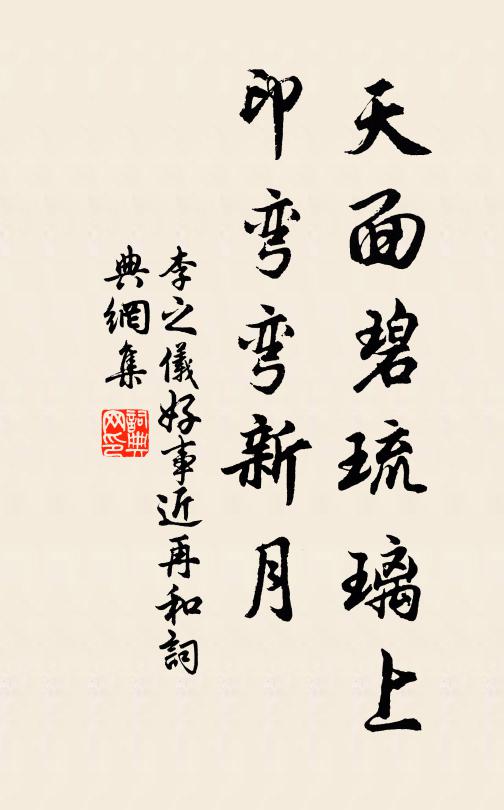 天面碧琉璃上
印弯弯新月
李之儀好事近再和詞
典網集
詞典
网印